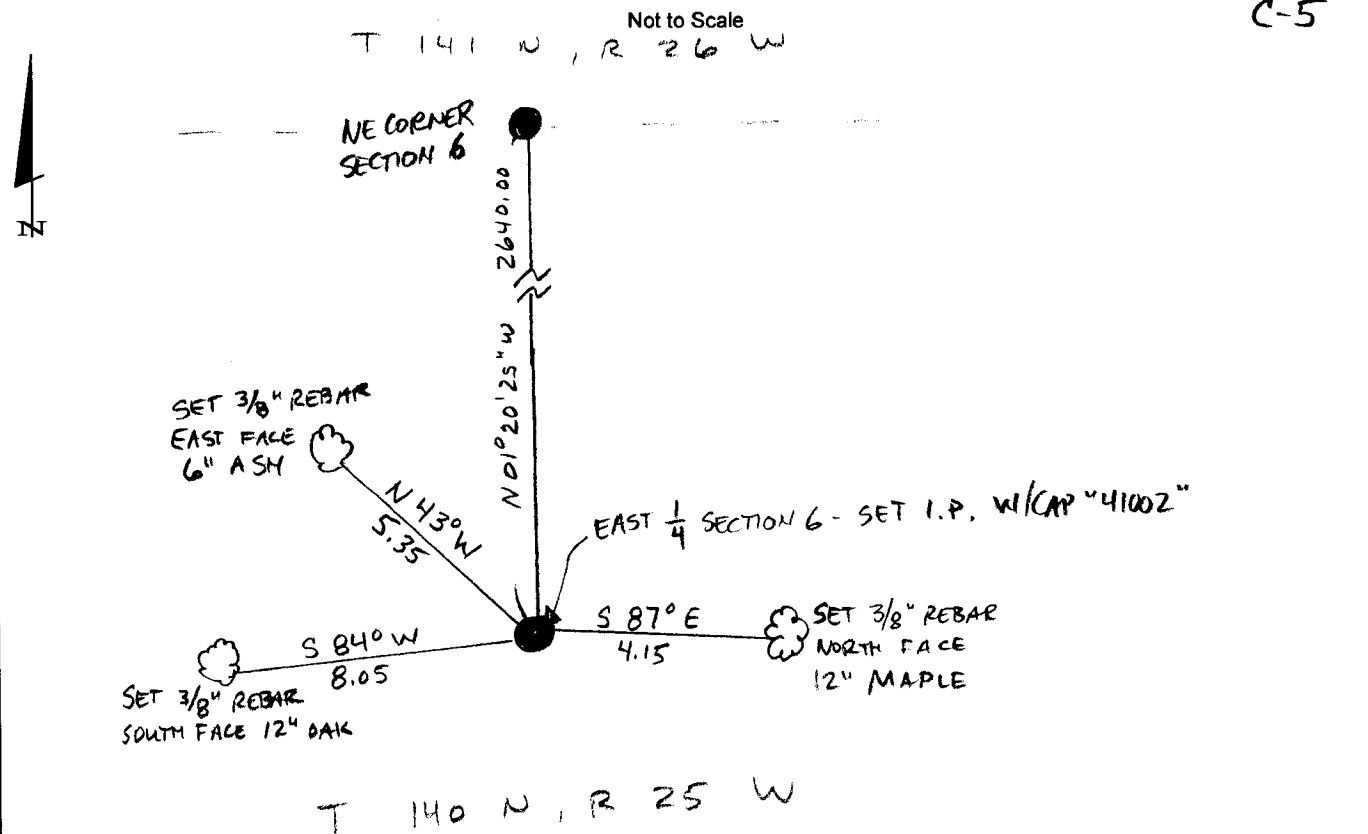 Not to Scale
C-5
T 141 N, R 26 W
NE CORNER
SECTION 6
2640.00
N
N01°20'25"W
SET 3/8" REBAR
EAST FACE
6" ASH
N 43° W
5.35
EAST 1/4 SECTION 6 - SET I.P. W/CAP "41002"
S 87° E
4.15
SET 3/8" REBAR
NORTH FACE
12" MAPLE
S 84° W
8.05
SET 3/8" REBAR
SOUTH FACE 12" OAK
T 140 N, R 25 W